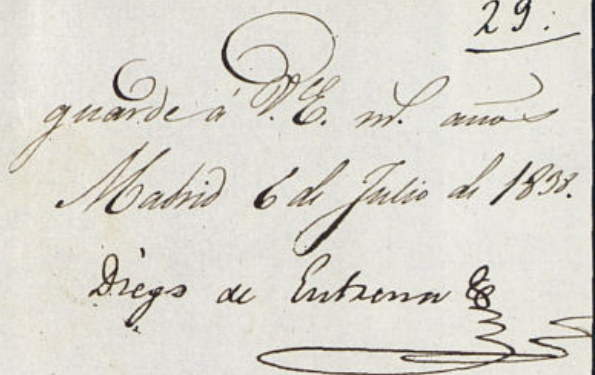 29.
guarde á V.E. m.s años
Madrid 6 de Julio de 1838.
Diego de Entrena